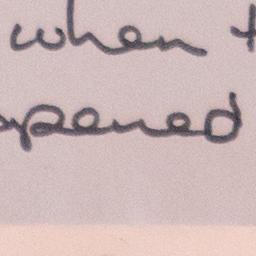 when t
pened